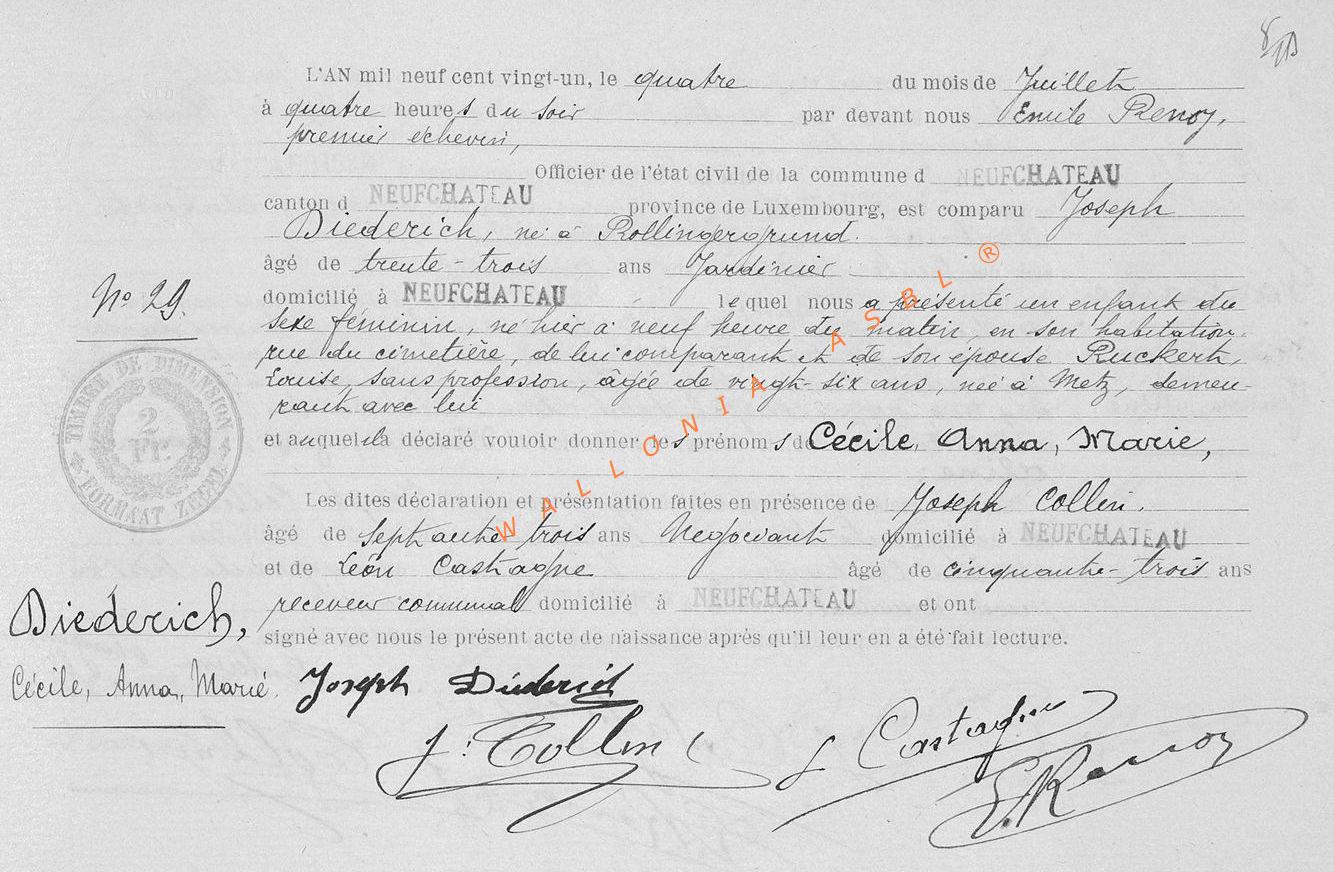 L'AN mil neuf cent vingt-un, le quatre du mois de Juillet
à quatre heures du soir par devant nous Emile Renoy,
premier échevin,
Officier de l'état civil de la commune d NEUFCHATEAU
canton d NEUFCHATEAU province de Luxembourg, est comparu Joseph
Diederich, né à Rollingergrund.
âgé de trente-trois ans Jardinier
N° 29.
domicilié à NEUFCHATEAU lequel nous a présenté un enfant du
sexe féminin, né hier à neuf heure du matin, en son habitation,
rue du cimetière, de lui comparant et de son épouse Ruckert,
Louise, sans profession, âgée de vingt-six ans, née à Metz, demeu-
rant avec lui
TIMBRE DE DIMENSION
2
Fr.
FORMAAT ZEGEL
et auquel a déclaré vouloir donner les prénoms de Cécile, Anna, Marie,
Les dites déclaration et présentation faites en présence de Joseph Collin.
âgé de septante trois ans Négociant domicilié à NEUFCHATEAU
et de Léon Castagne âgé de cinquante-trois ans
receveur communal domicilié à NEUFCHATEAU et ont
signé avec nous le présent acte de naissance après qu'il leur en a été fait lecture.
Diederich,
Cécile, Anna, Marie.
Joseph Diederich
J. Collin
L Castagne
E. Renoy
WALLONIA ASBL ®